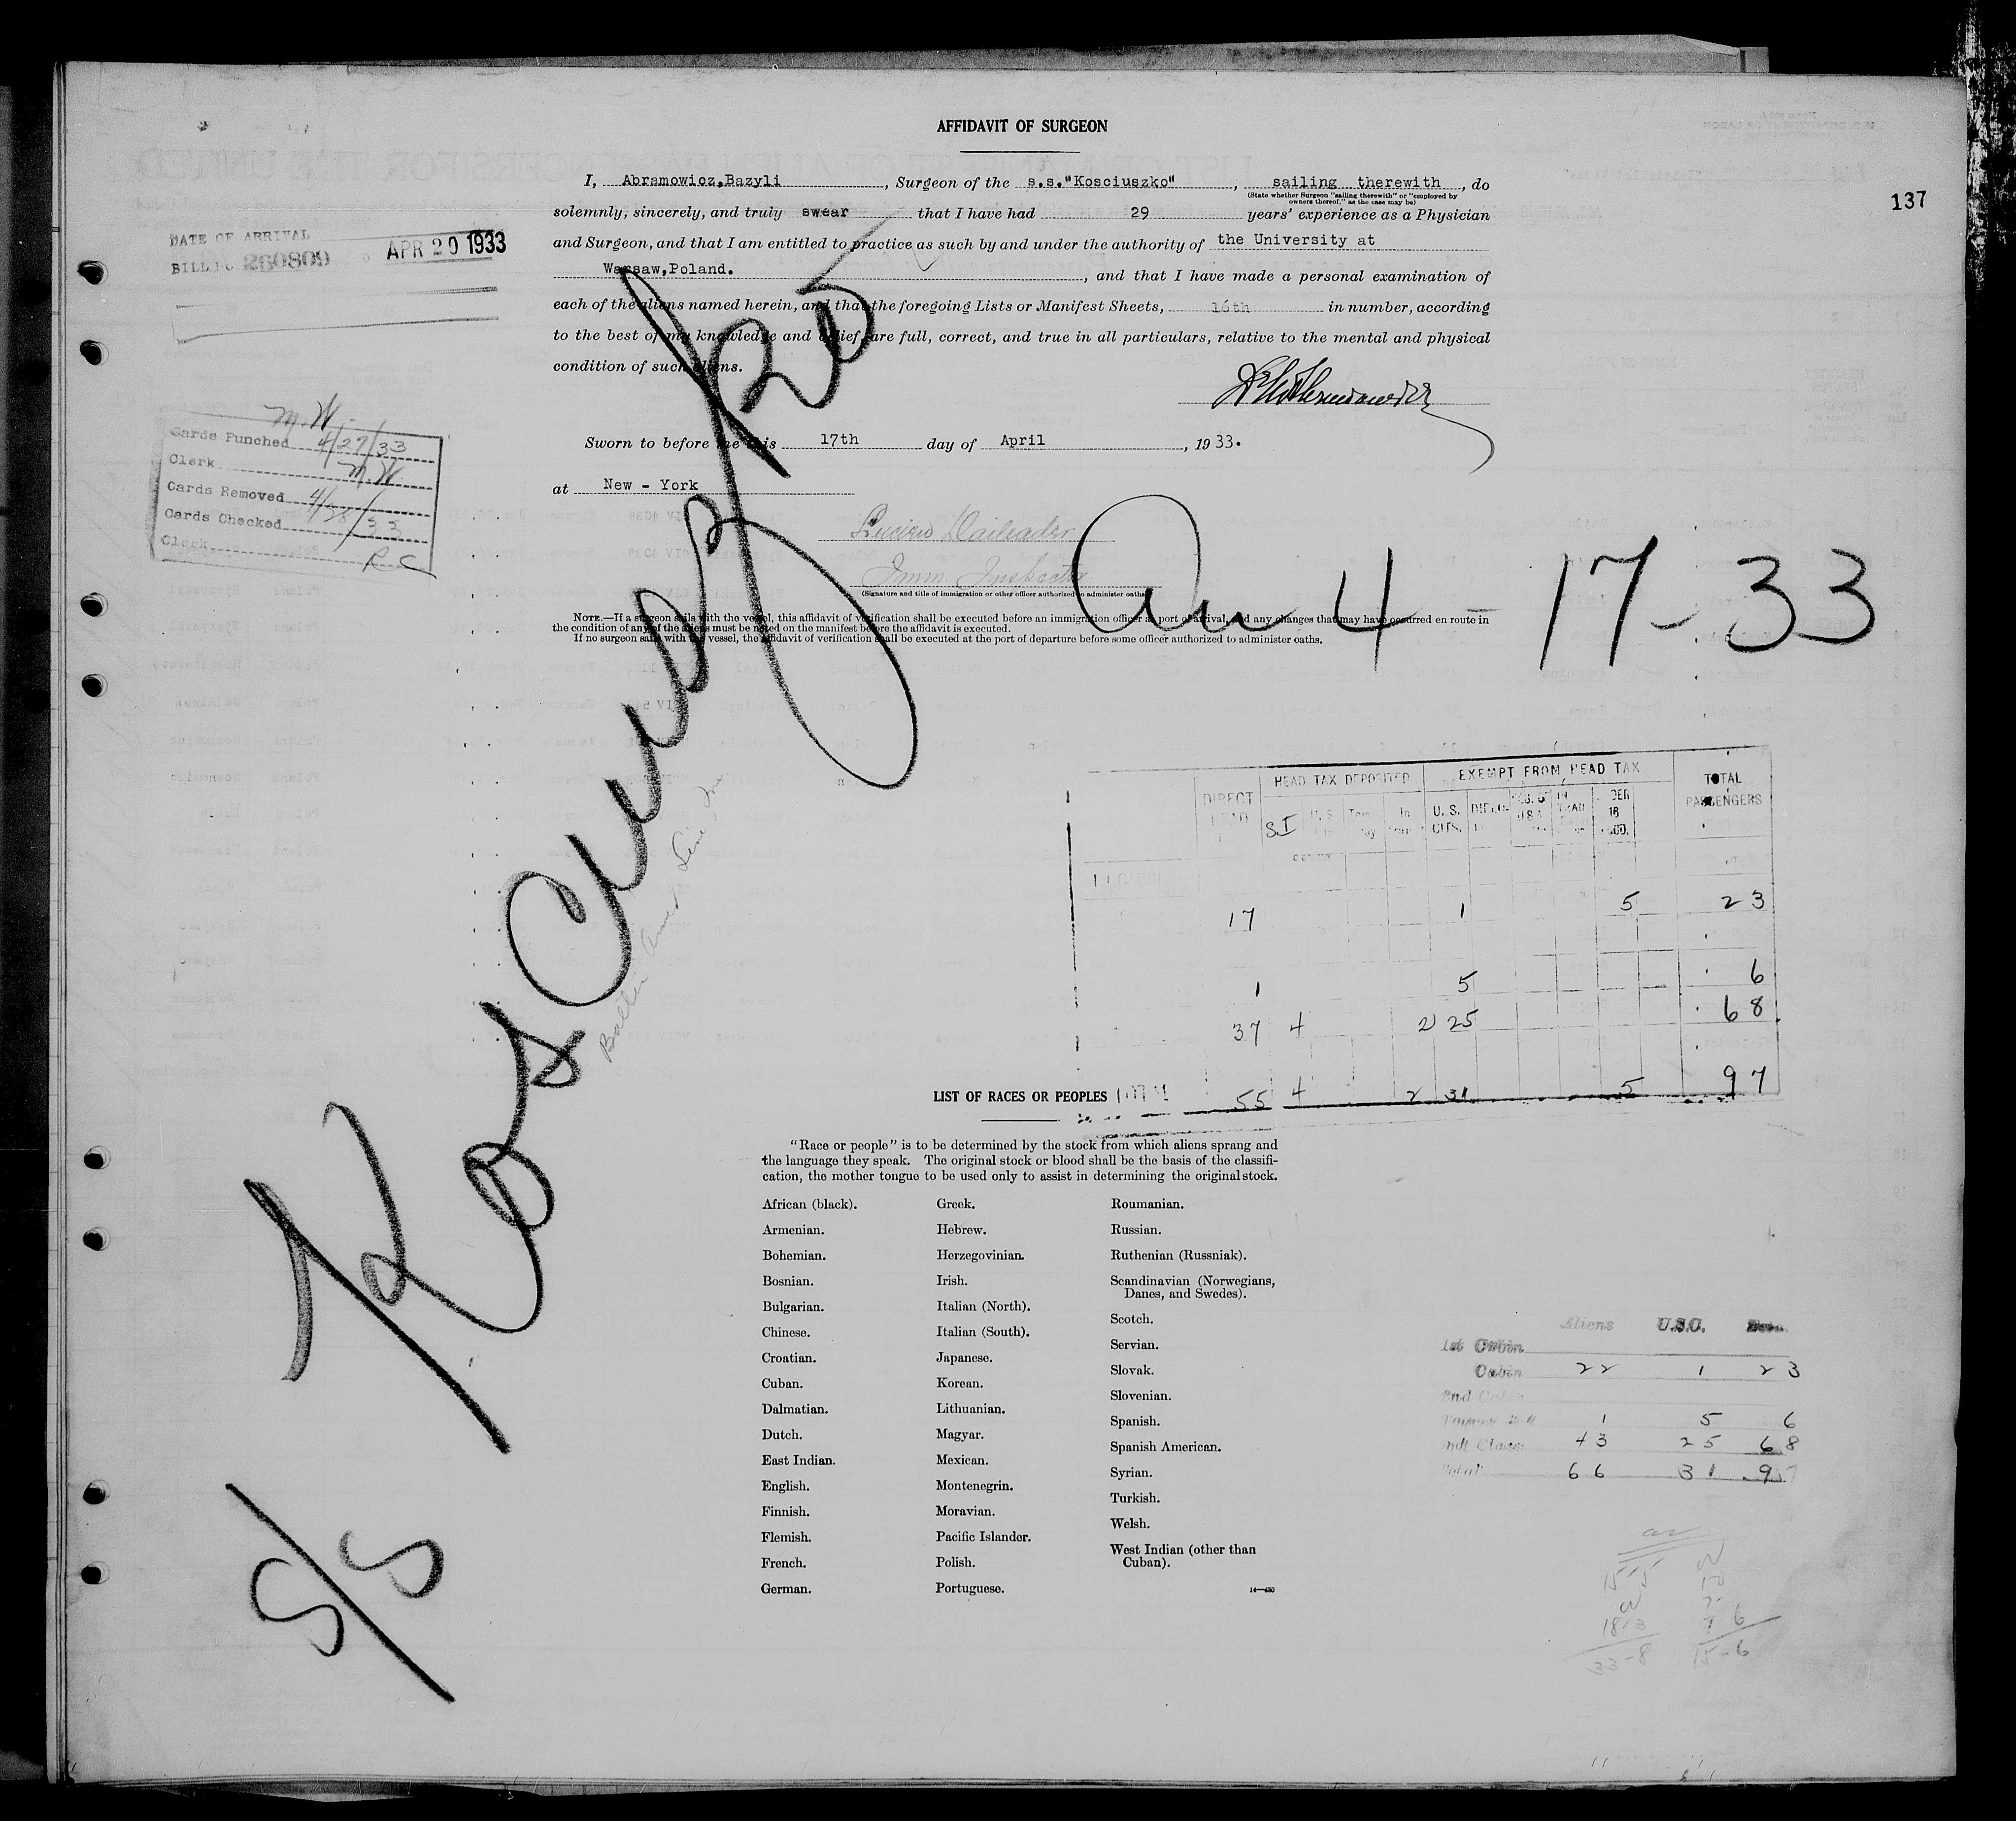 AFFIDAVIT OF SURGEON
137
I, Abramowicz,Bazyli, Surgeon of the s.s."Kosciuszko", sailing therewith, do
(State whether Surgeon "sailing therewith" or "employed by
owners thereof," as the case may be)
solemnly, sincerely, and truly swear that I have had 29 years' experience as a Physician
and Surgeon, and that I am entitled to practice as such by and under the authority of the University at
Warsaw,Poland., and that I have made a personal examination of
each of the aliens named herein, and that the foregoing Lists or Manifest Sheets, 16th in number, according
to the best of my knowledge and belief, are full, correct, and true in all particulars, relative to the mental and physical
condition of such aliens.
Sworn to before me this 17th day of April, 1933.
at New - York
Imm. Inspector
(Signature and title of immigration or other officer authorized to administer oaths)
NOTE.—If a surgeon sails with the vessel, this affidavit of verification shall be executed before an immigration officer at port of arrival, and any changes that may have occurred en route in
the condition of any of the aliens must be noted on the manifest before the affidavit is executed.
If no surgeon sails with the vessel, the affidavit of verification shall be executed at the port of departure before some officer authorized to administer oaths.
DATE OF ARRIVAL
APR 20 1933
260809
M.W.
Cards Punched 4/27/33
Clerk M.W
Cards Removed 4/28/33
Cards Checked
Clerk R C
S/S Kosciuszko
Arr 4-17-33
HEAD TAX DEPOSITED EXEMPT FROM HEAD TAX TOTAL PASSENGERS
DIRECT HEAD S.I U.S. CITS.
17 1 5 23
1 5 6
37 4 2 25 68
TOTAL 55 4 2 31 5 97
LIST OF RACES OR PEOPLES
"Race or people" is to be determined by the stock from which aliens sprang and
the language they speak. The original stock or blood shall be the basis of the classifi-
cation, the mother tongue to be used only to assist in determining the original stock.
African (black).
Armenian.
Bohemian.
Bosnian.
Bulgarian.
Chinese.
Croatian.
Cuban.
Dalmatian.
Dutch.
East Indian.
English.
Finnish.
Flemish.
French.
German.
Greek.
Hebrew.
Herzegovinian.
Irish.
Italian (North).
Italian (South).
Japanese.
Korean.
Lithuanian.
Magyar.
Mexican.
Montenegrin.
Moravian.
Pacific Islander.
Polish.
Portuguese.
Roumanian.
Russian.
Ruthenian (Russniak).
Scandinavian (Norwegians,
Danes, and Swedes).
Scotch.
Servian.
Slovak.
Slovenian.
Spanish.
Spanish American.
Syrian.
Turkish.
Welsh.
West Indian (other than
Cuban).
Aliens U.S.C.
1st Cabin
Cabin 22 1 23
2nd Cabin
1 5 6
3rd Class 43 25 68
Total 66 31 97